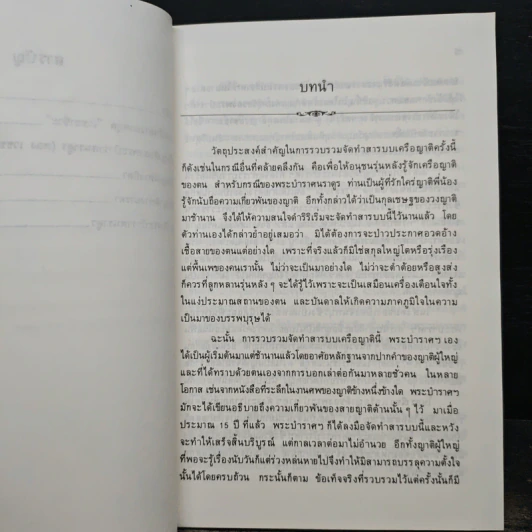 บทนำ
วัตถุประสงค์สำคัญในการรวบรวมจัดทำสารบบเครือญาติครั้งนี้
ก็ดังเช่นในกรณีอื่นที่คล้ายคลึงกัน คือเพื่อให้อนุชนรุ่นหลังรู้จักเครือญาติ
ของตน สำหรับกรณีของพระบำราศนราดูร ท่านเป็นผู้ที่รักใคร่ญาติพี่น้อง
รู้จักนับถือความเกี่ยวพันของญาติ อีกทั้งกล่าวได้ว่าเป็นกุลเชษฐของวงญาติ
มาช้านาน จึงได้ให้ความสนใจดำริริเริ่มจะจัดทำสารบบนี้ไว้นานแล้ว โดย
ตัวท่านเองได้กล่าวย้ำอยู่เสมอว่า มิได้ต้องการจะป่าวประกาศอวดอ้าง
เชื้อสายของตนแต่อย่างใด เพราะที่จริงแล้วก็มิใช่สกุลใหญ่โตหรือรุ่งเรือง
แต่พื้นเพของคนเรานั้น ไม่ว่าจะเป็นมาอย่างใด ไม่ว่าจะต่ำต้อยหรือสูงส่ง
ก็ควรที่ลูกหลานรุ่นหลัง ๆ จะได้รู้ไว้เพราะจะเป็นเสมือนเครื่องเตือนใจทั้ง
ในแง่ประมาณสถานของตน และบันดาลให้เกิดความภาคภูมิใจในความ
เป็นมาของบรรพบุรุษได้
ฉะนั้น การรวบรวมจัดทำสารบบเครือญาตินี้ พระบำราศฯ เอง
ได้เป็นผู้เริ่มต้นมาแต่ช้านานแล้วโดยอาศัยหลักฐานจากปากคำของญาติผู้ใหญ่
และที่ได้ทราบด้วยตนเองจากการบอกเล่าต่อกันมาหลายชั่วคน ในหลาย
โอกาส เช่นจากหนังสือที่ระลึกในงานศพของญาติข้างหนึ่งข้างใด พระบำราศฯ
มักจะได้เขียนอธิบายถึงความเกี่ยวพันของสายญาติด้านนั้น ๆ ไว้ มาเมื่อ
ประมาณ 15 ปี ที่แล้ว พระบำราศฯ ก็ได้ลงมือจัดทำสารบบนี้และหวัง
จะทำให้เสร็จสิ้นบริบูรณ์ แต่กาลเวลาต่อมาไม่อำนวย อีกทั้งญาติผู้ใหญ่
ที่พอจะรู้เรื่องนับวันก็แต่ร่วงหล่นหายไปจึงทำให้มิสามารถบรรลุความตั้งใจ
นั้นได้โดยครบถ้วน กระนั้นก็ตาม ข้อเท็จจริงที่รวบรวมไว้แต่ครั้งนั้นก็มี